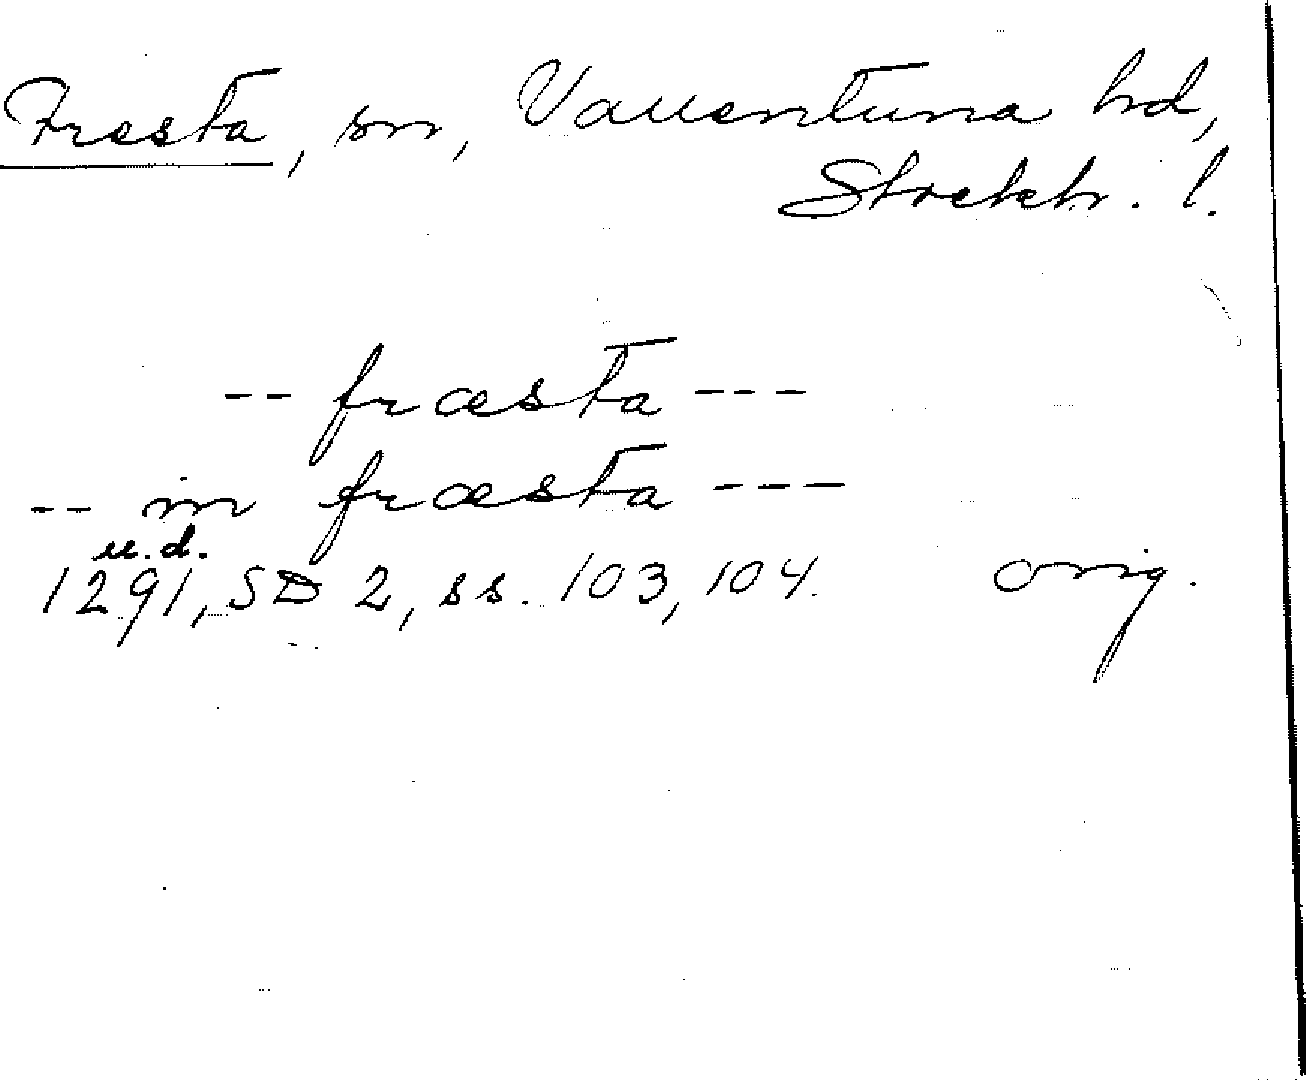 Fresta, sn, Vallentuna hd,
Stockh. l.
-- fræsta ---
-- in fræsta ---
u.d.
1291, SD 2, ss. 103, 104. orig.